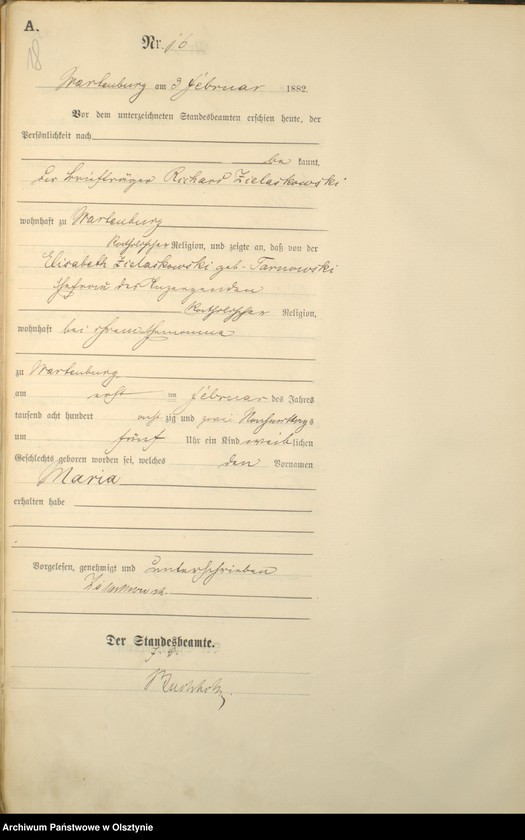 A.
Nr. 16
Wartenburg am 3 Februar 1882.
Vor dem unterzeichneten Standesbeamten erschien heute, der
Persönlichkeit nach
be kannt,
der Briefträger Richard Zielaskowski
wohnhaft zu Wartenburg
katholischer Religion, und zeigte an, daß von der
Elisabeth Zielaskowski geb. Tarnowski
Ehefrau des Anzeigenden
katholischer Religion,
wohnhaft bei ihrem Ehemanne
zu Wartenburg
am ersten Februar des Jahres
tausend acht hundert acht zig und zwei Nachmittags
um fünf Uhr ein Kind weiblichen
Geschlechts geboren worden sei, welches den Vornamen
Maria
erhalten habe
Vorgelesen, genehmigt und unterschrieben
Zielaskowski.
Der Standesbeamte.
Archiwum Państwowe w Olsztynie